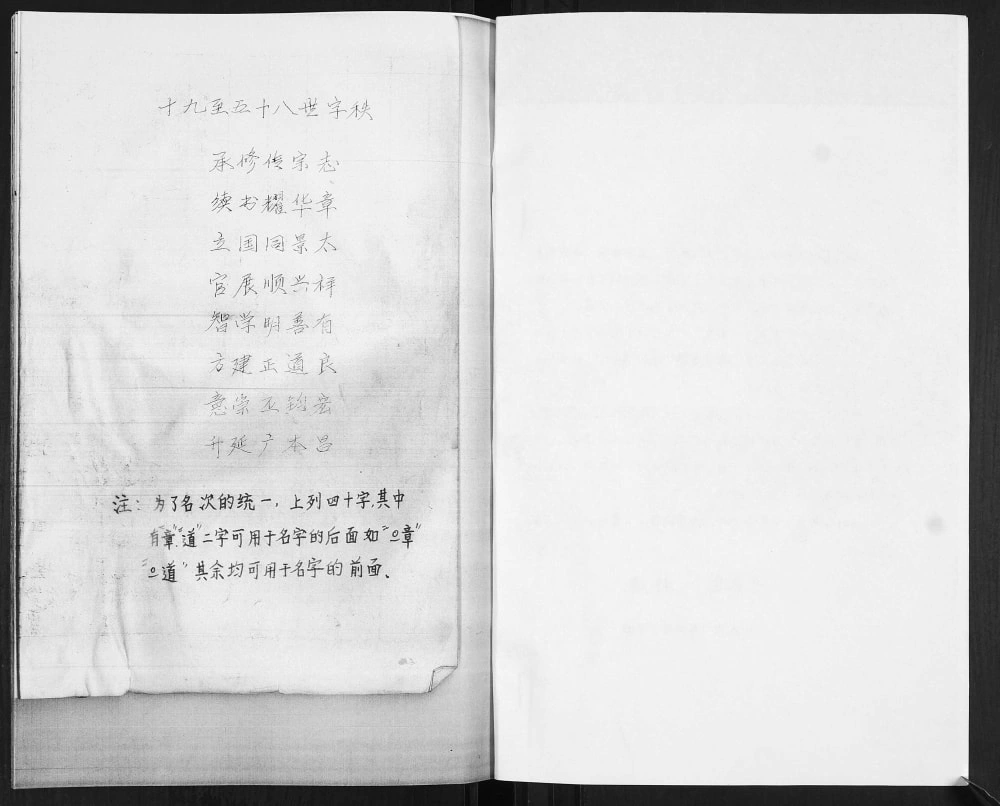 十九至五十八世字秩
承修传宗志
续书耀华章
立国同景太
官展顺兴祥
智学明善有
方建正道良
意崇丕钧宏
升延广本昌
注：为了名次的统一，上列四十字，其中
有"章""道"二字可用于名字的后面如"〇章"
"〇道"其余均可用于名字的前面、